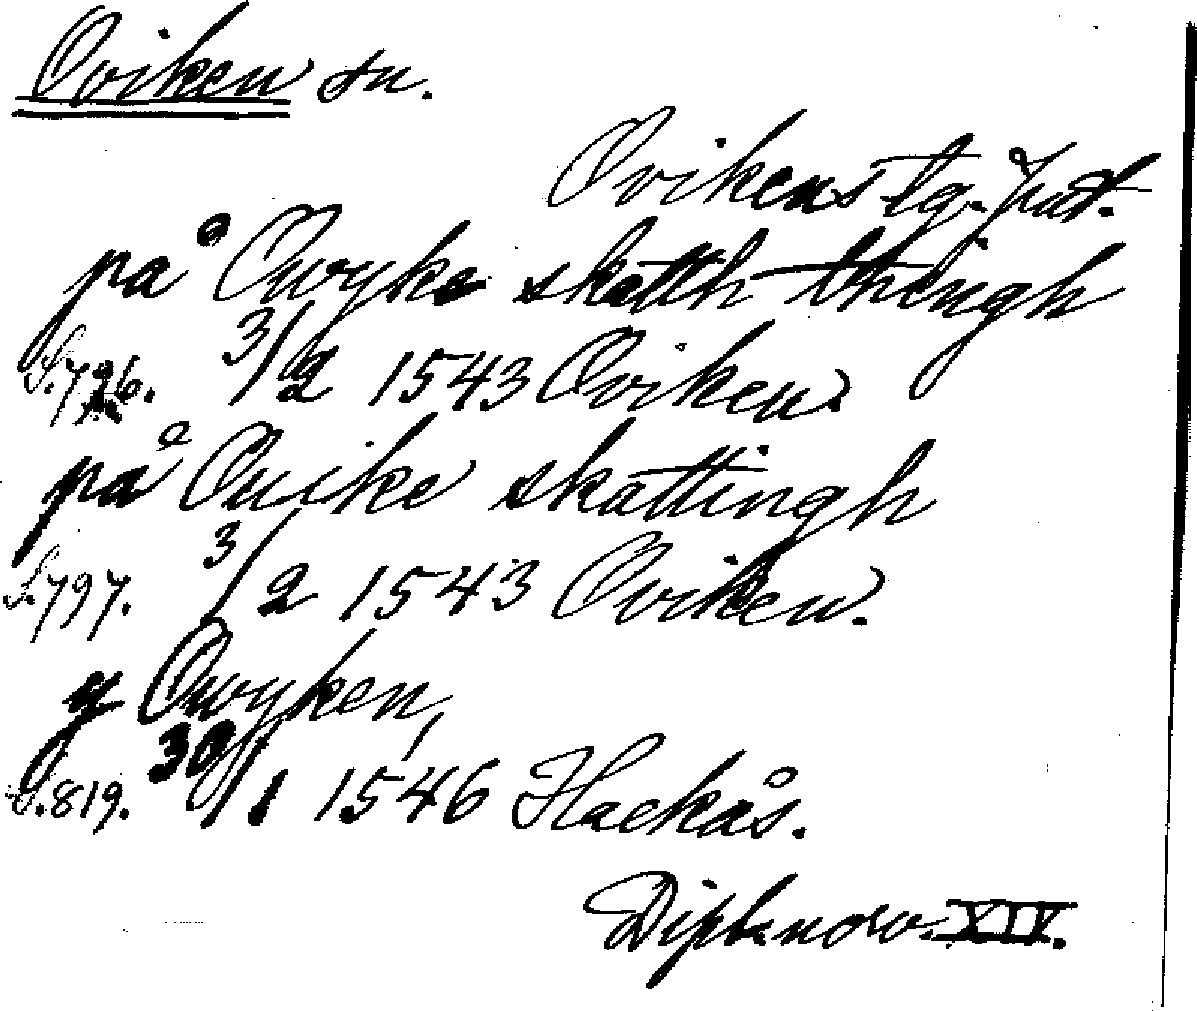 Oviken sn.
Ovikens tg. Jmt.
på Owyke skatth thingh
S. 796. 3/2 1543 Oviken.
på Ouike skattingh
S. 797. 3/2 1543 Oviken.
y Owyken,
S. 819. 30/1 1546 Hackås.
Dipl. norv. XIV.